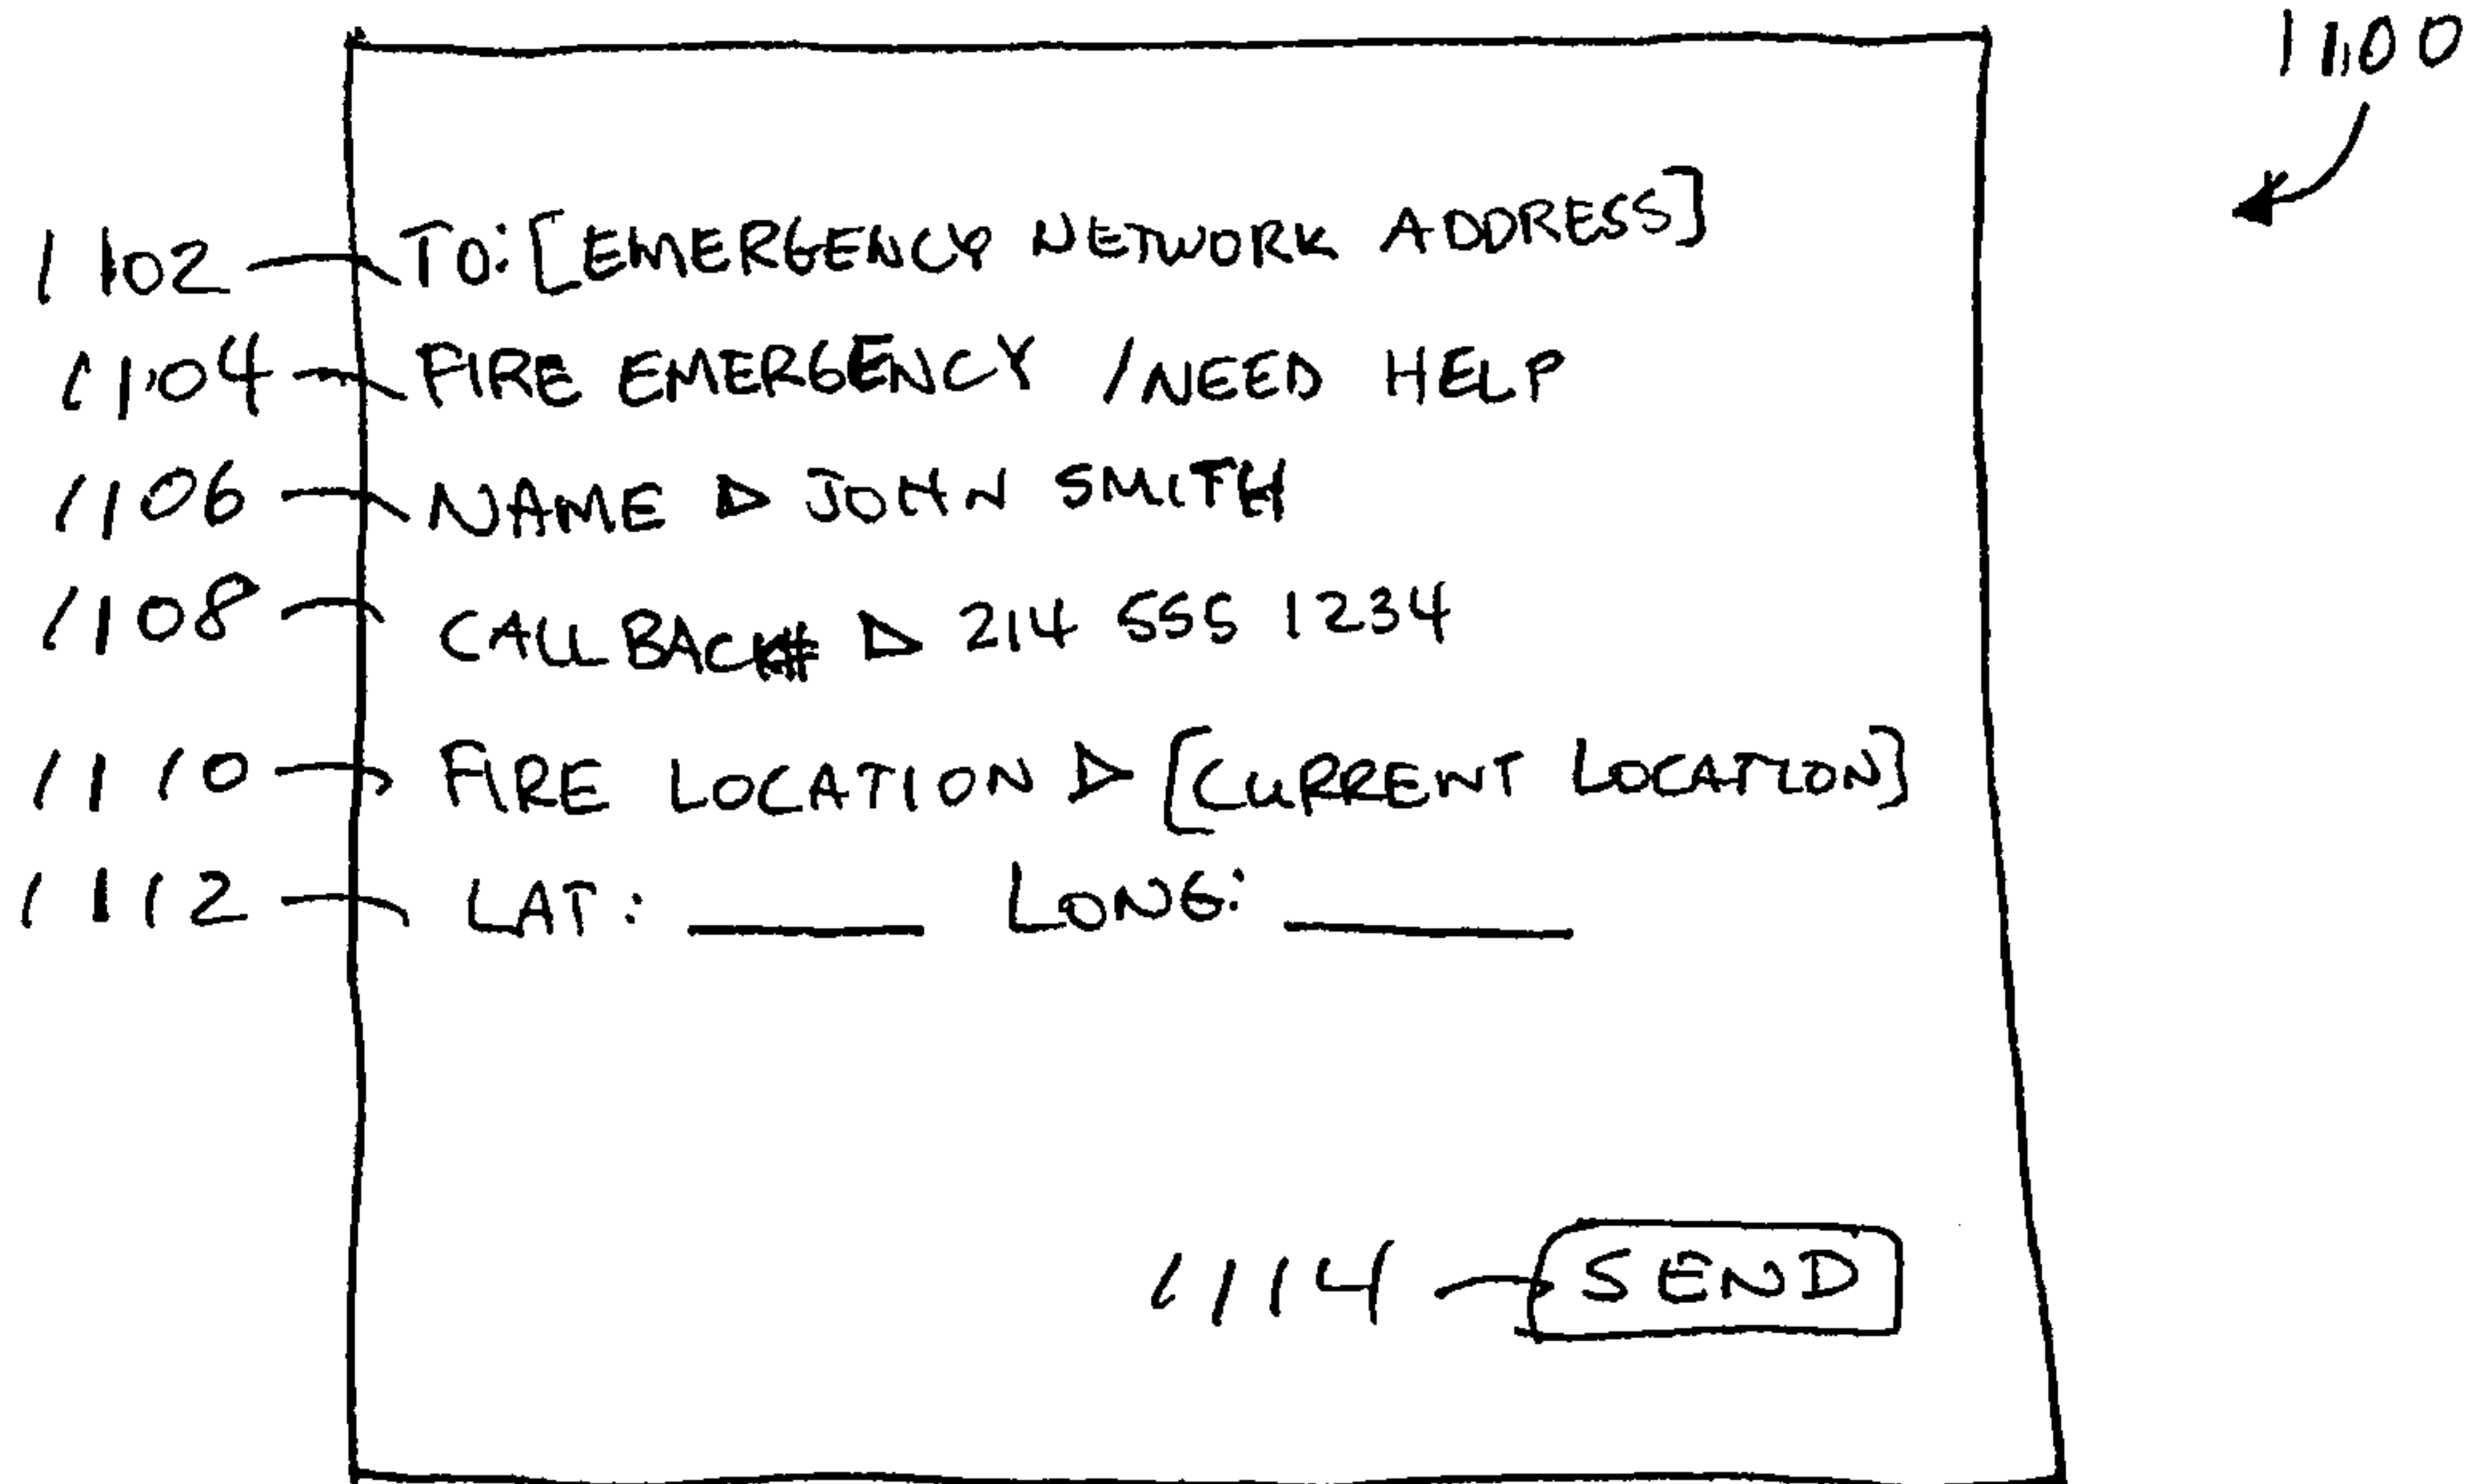 1100
1102 TO: [EMERGENCY NETWORK ADDRESS]
1104 FIRE EMERGENCY / NEED HELP
1106 NAME ▷ JOHN SMITH
1108 CALL BACK# ▷ 214 555 1234
1110 FIRE LOCATION ▷ [CURRENT LOCATION]
1112 LAT: ____ LONG: ____
1114 SEND